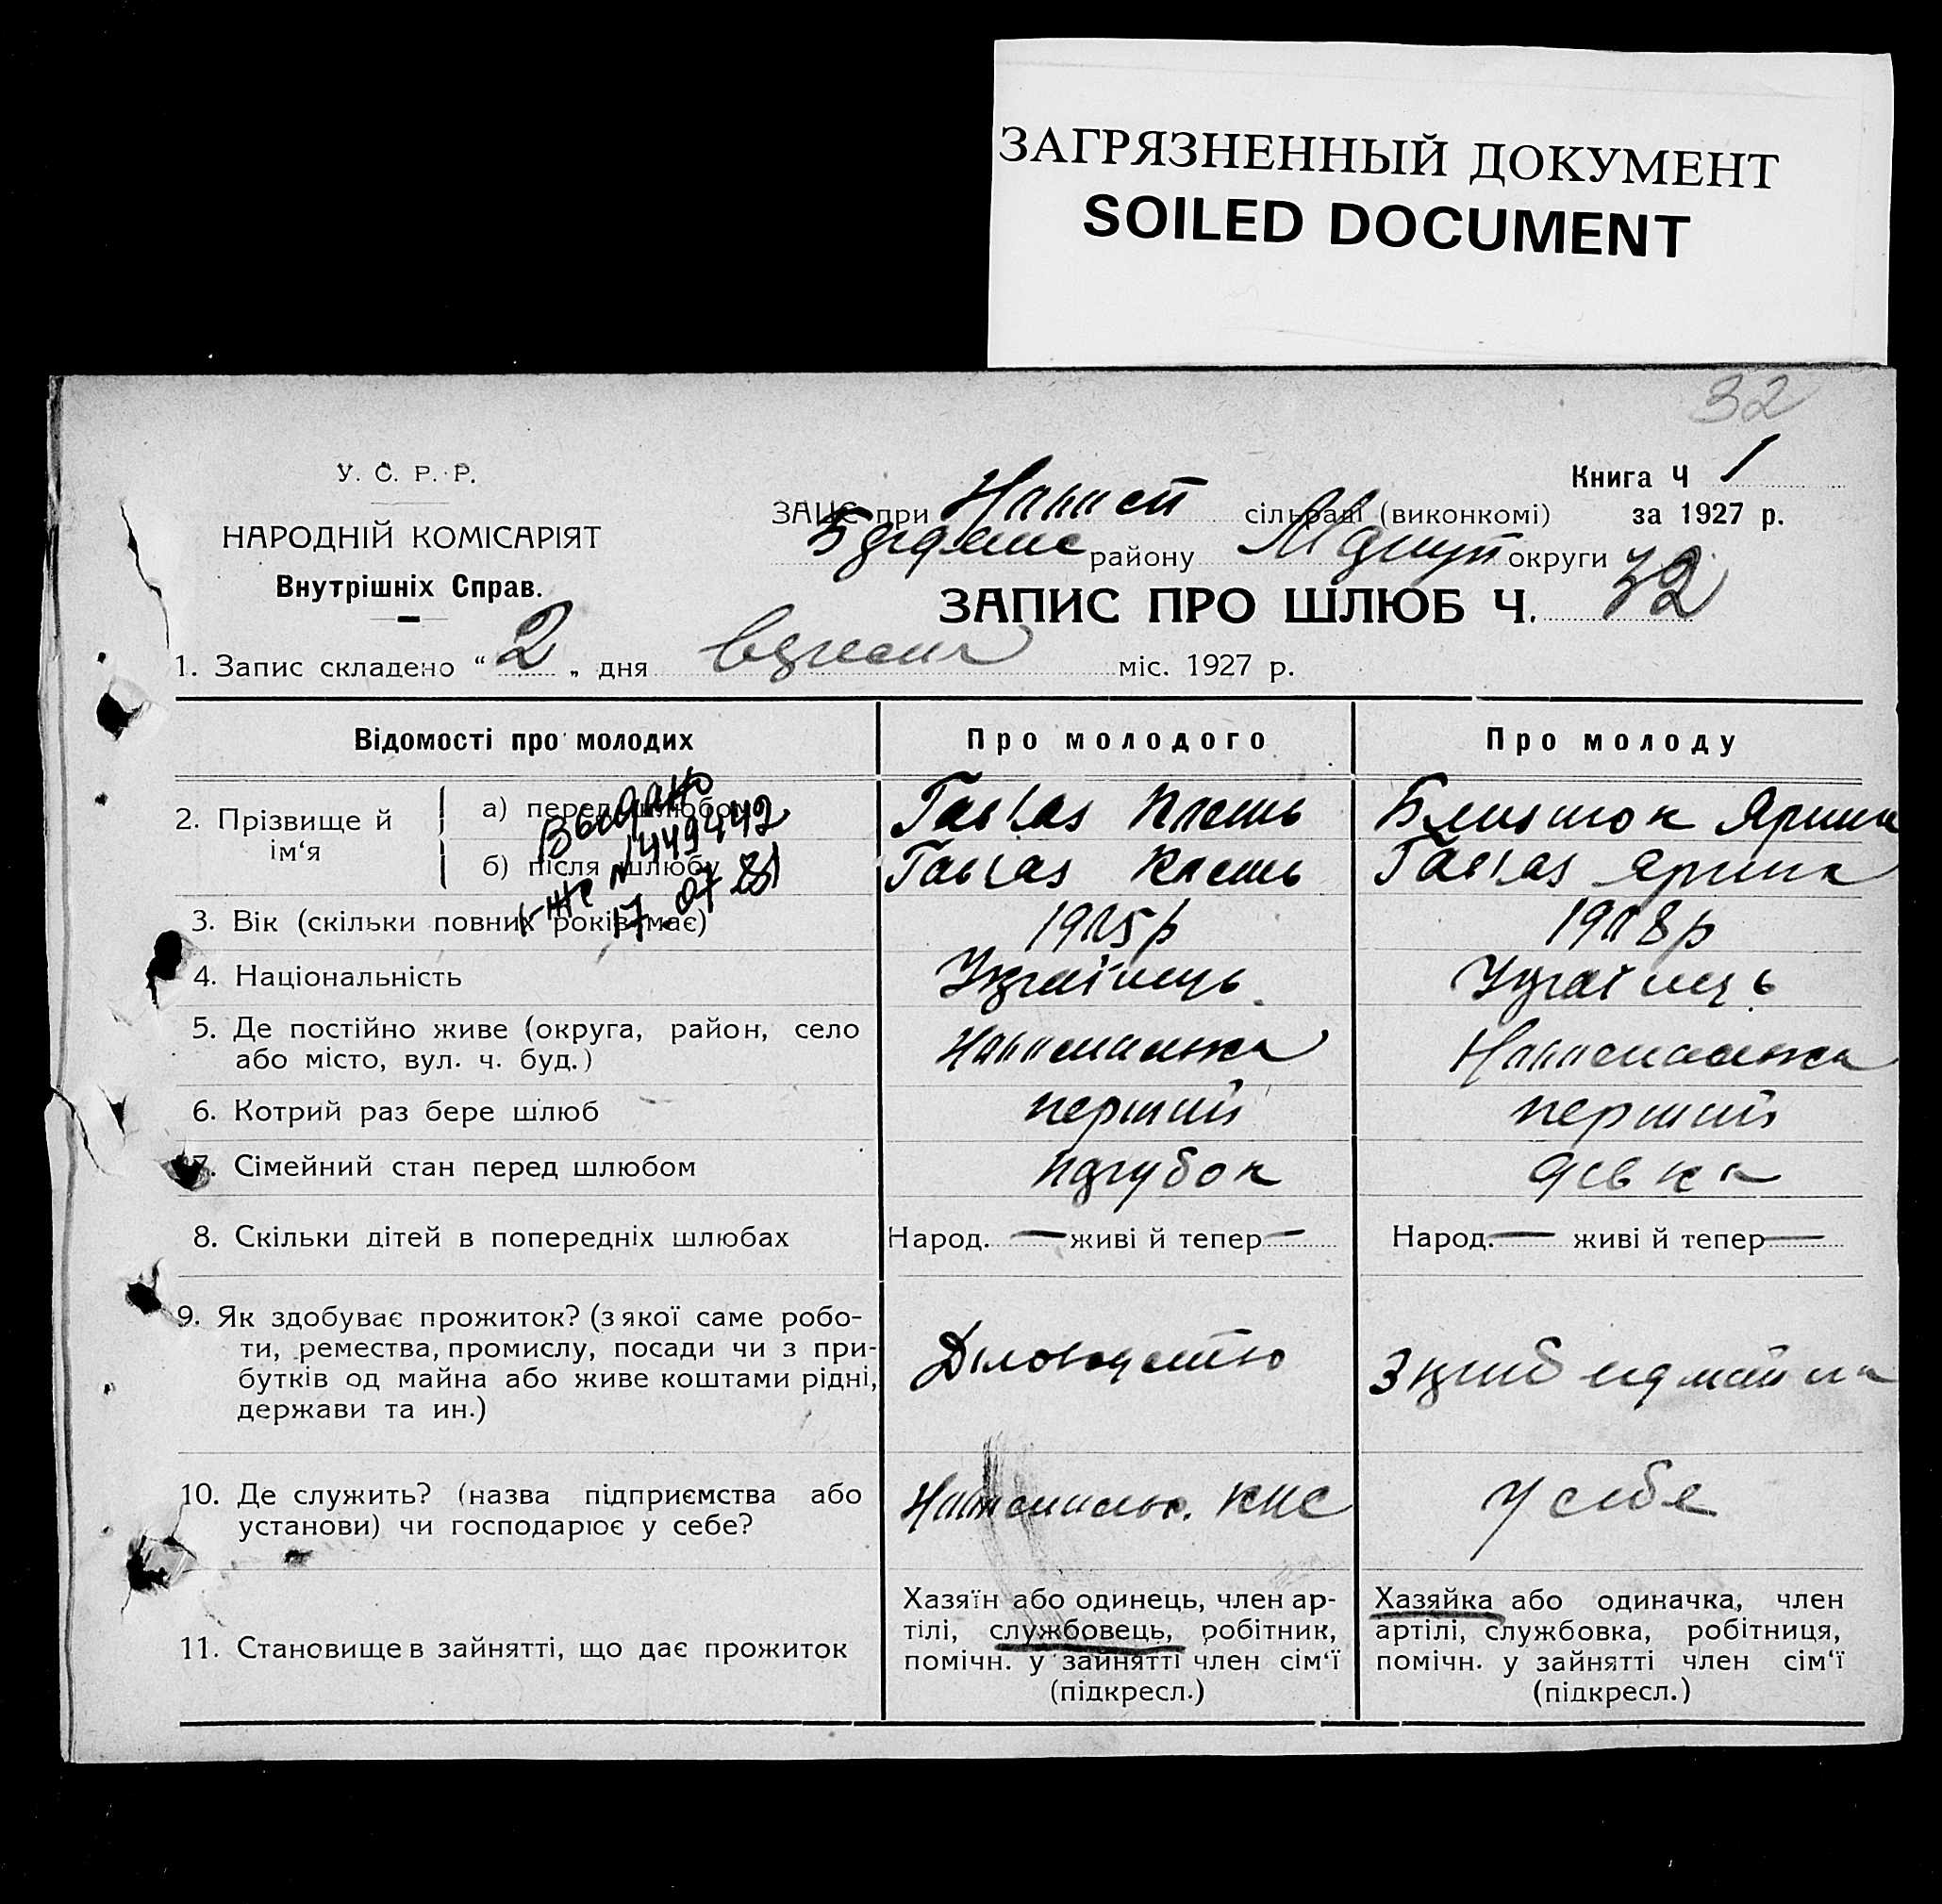 ЗАГРЯЗНЕННЫЙ ДОКУМЕНТ
SOILED DOCUMENT
32
У. С. Р. Р.
НАРОДНІЙ КОМІСАРІЯТ
Внутрішніх Справ.
Книга Ч 1
ЗАЦС при сільраді (виконкомі)
за 1927 р.
району округи
ЗАПИС ПРО ШЛЮБ Ч. 32
1. Запис складено “ 2 „ дня вересня міс. 1927 р.
Відомості про молодих
Про молодого
Про молоду
2. Прізвище й ім‘я
а) перед шлюбом
б) після шлюбу
Ярина
Ярина
Выдано
N 449442
17.07.81
3. Вік (скільки повних років має)
1905р
1908р
4. Національність
Українець
Українець
5. Де постійно живе (округа, район, село
або місто, вул. ч. буд.)
6. Котрий раз бере шлюб
перший
перший
7. Сімейний стан перед шлюбом
парубок
дівка
8. Скільки дітей в попередніх шлюбах
Народ. — живі й тепер —
Народ. — живі й тепер —
9. Як здобуває прожиток? (з якої саме робо-
ти, ремества, промислу, посади чи з при-
бутків од майна або живе коштами рідні,
держави та ин.)
Діловодство
10. Де служить? (назва підприємства або
установи) чи господарює у себе?
У себе
11. Становище в зайнятті, що дає прожиток
Хазяїн або одинець, член ар-
тілі, службовець, робітник,
помічн. у зайнятті член сім‘ї
(підкресл.)
Хазяйка або одиначка, член
артілі, службовка, робітниця,
помічн. у зайнятті член сім‘ї
(підкресл.)